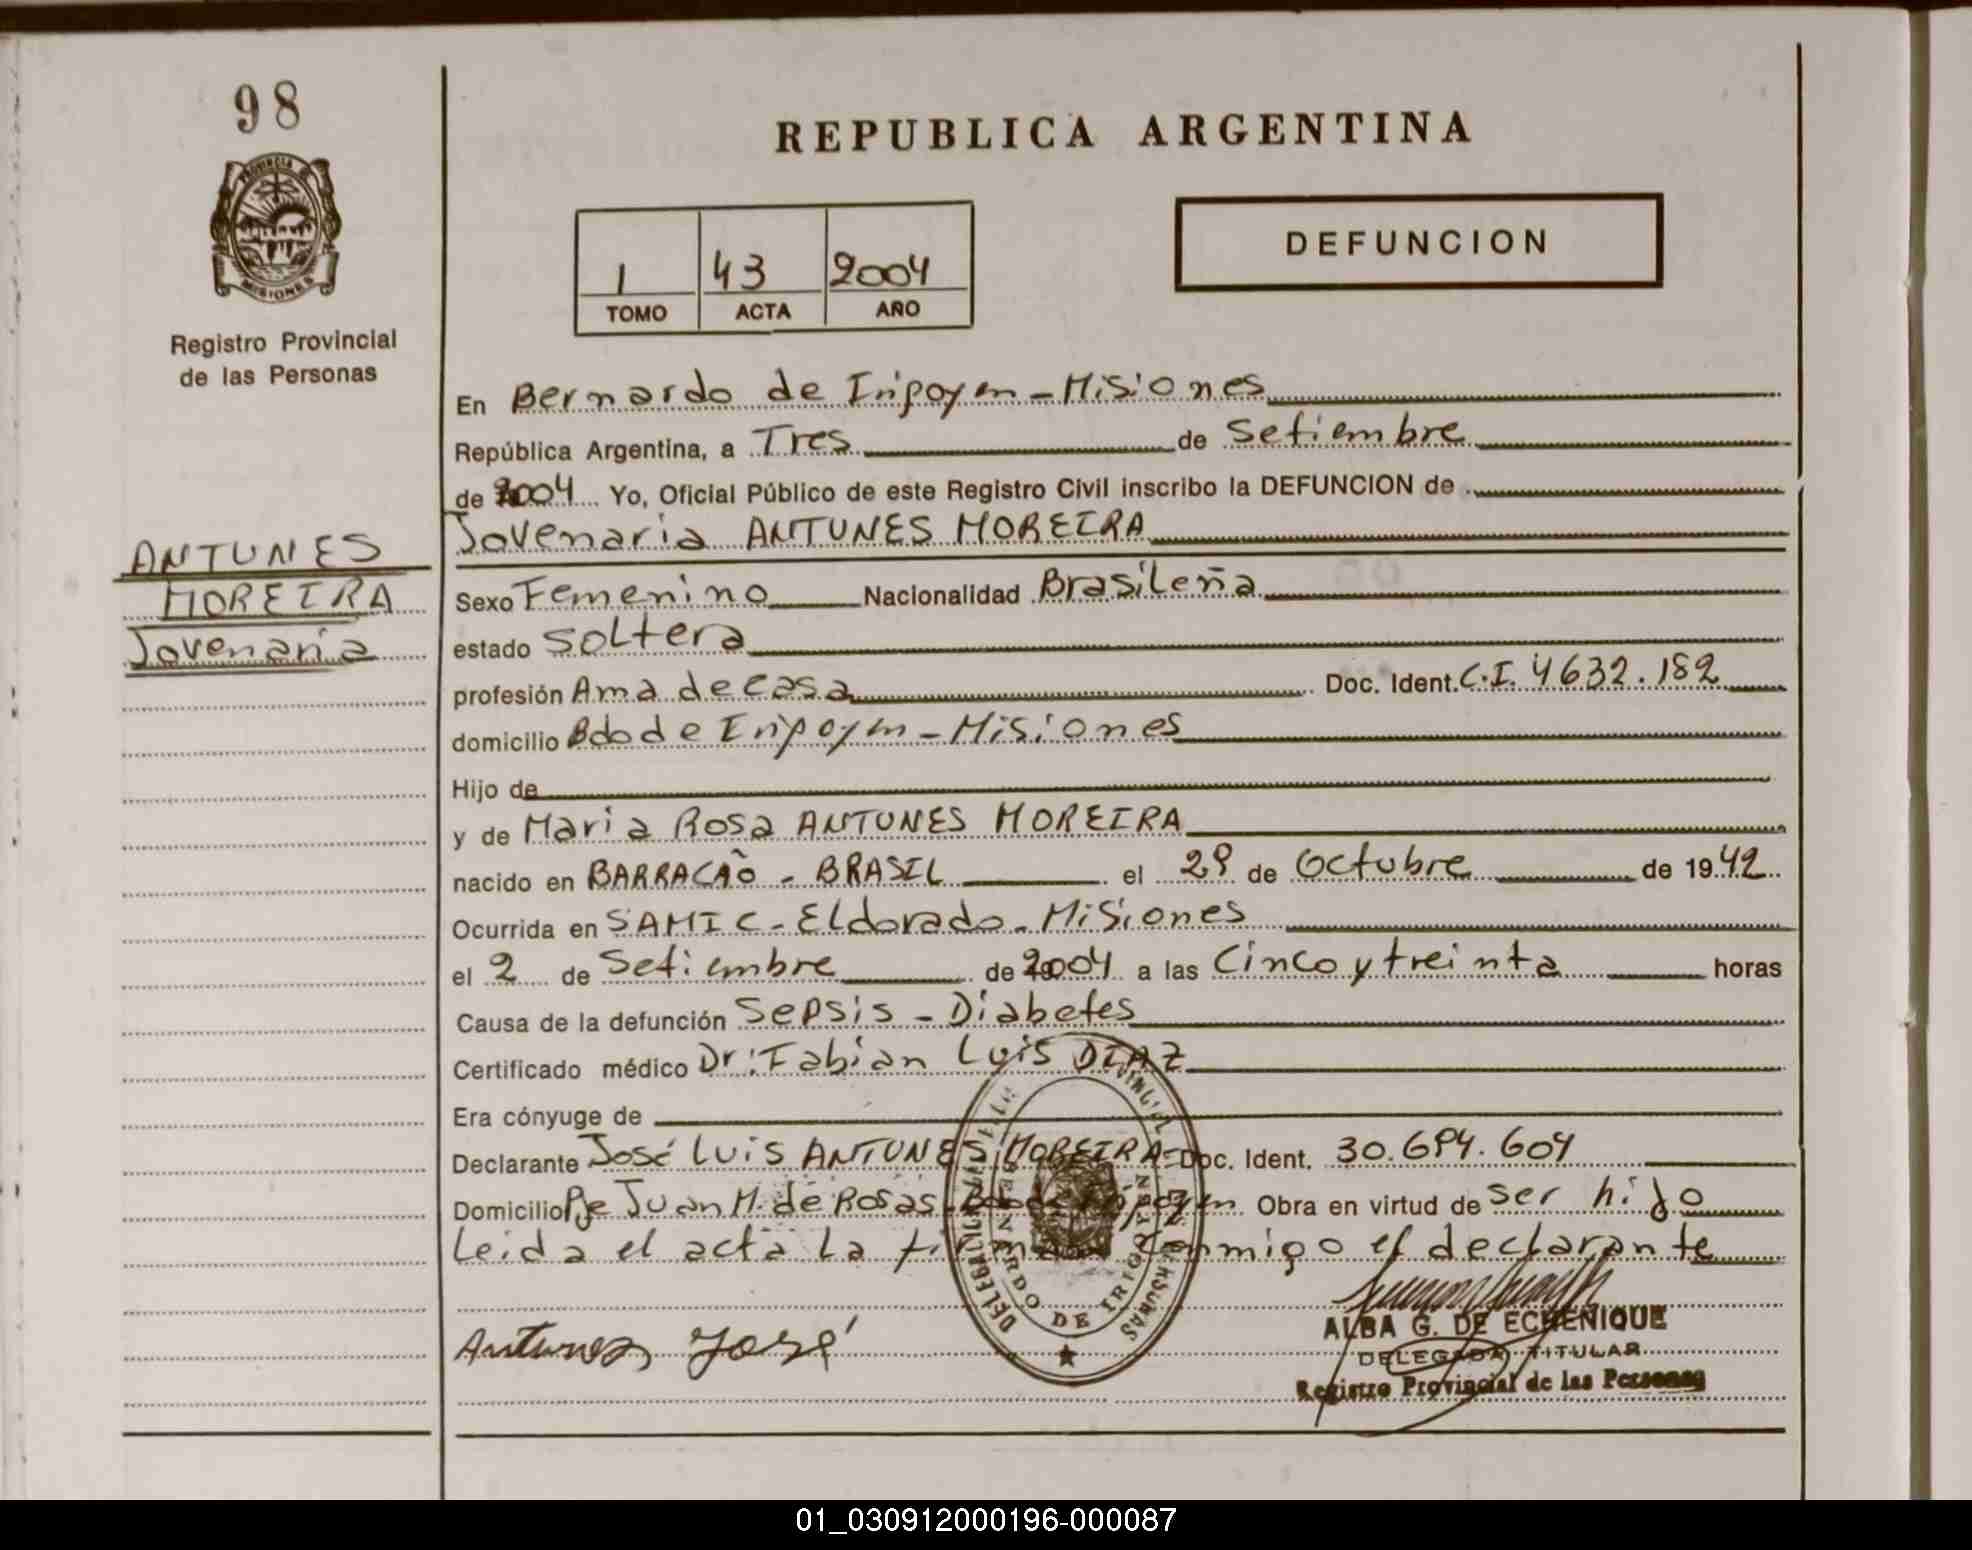 98
PROVINCIA DE
MISIONES
Registro Provincial
de las Personas
REPUBLICA ARGENTINA
1 43 2004
TOMO ACTA AÑO
DEFUNCION
En Bernardo de Irigoyen - Misiones
República Argentina, a Tres de Setiembre
de 2004 Yo, Oficial Público de este Registro Civil inscribo la DEFUNCION de
Jovenaria ANTUNES MOREIRA
ANTUNES
MOREIRA
Jovenaria
Sexo Femenino Nacionalidad Brasileña
estado soltera
profesión Ama de casa Doc. Ident. C.I. 4632.182
domicilio Bdo de Irigoyen - Misiones
Hijo de
y de Maria Rosa ANTUNES MOREIRA
nacido en BARRACÃO - BRASIL el 29 de Octubre de 1942
Ocurrida en SAMIC - Eldorado - Misiones
el 2 de Setiembre de 2004 a las Cinco y treinta horas
Causa de la defunción Sepsis - Diabetes
Certificado médico Dr: Fabian Luis DIAZ
Era cónyuge de
Declarante José Luis ANTUNES MOREIRA - Doc. Ident. 30.694.604
Domicilio Pje Juan M. de Rosas - Bdo de Irigoyen Obra en virtud de ser hijo
Leida el acta la firma conmigo el declarante
Antunes José
ALBA G. DE ECHENIQUE
DELEGADA TITULAR
Registro Provincial de las Personas
01_030912000196-000087